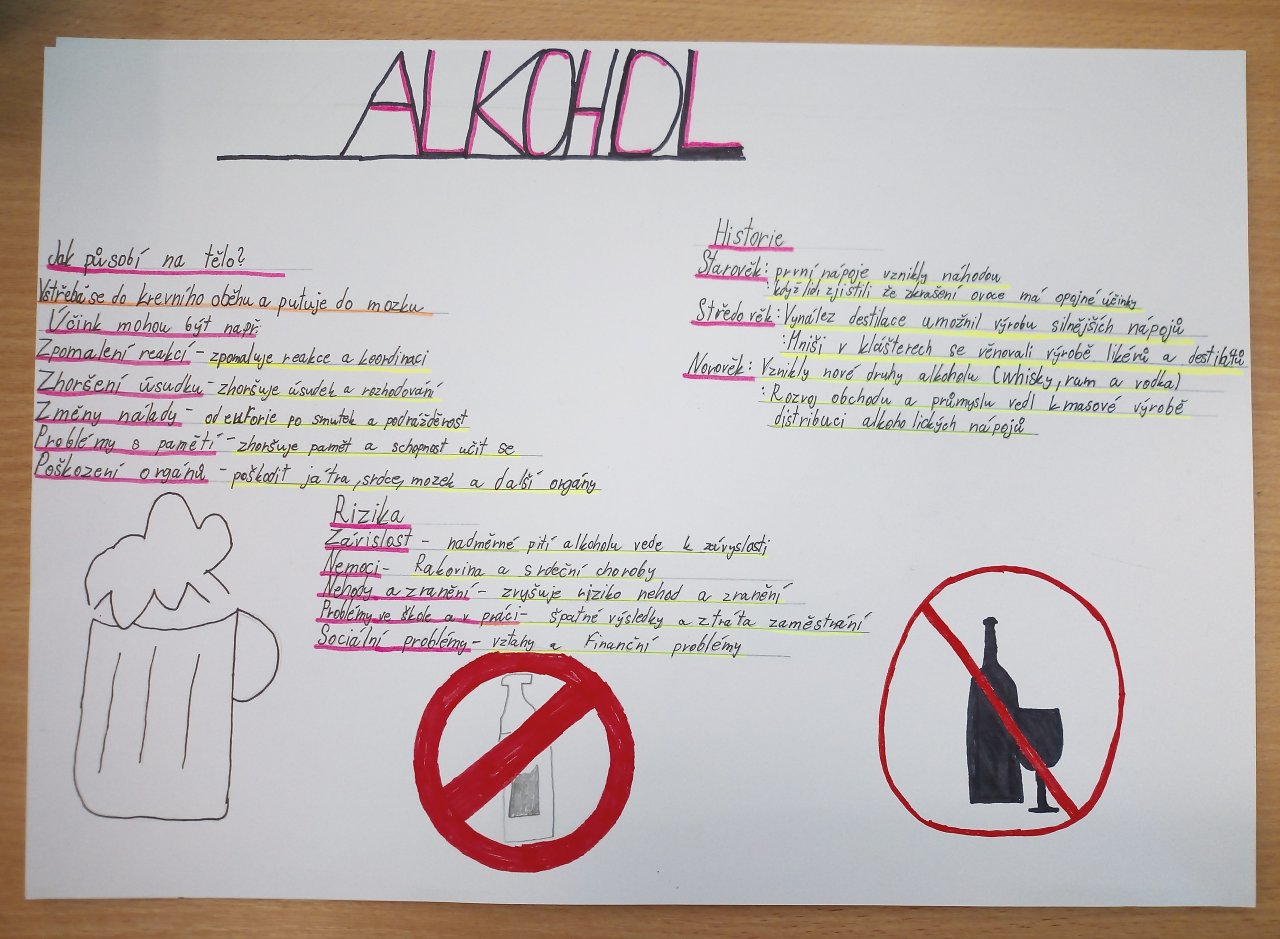 ALKOHOL
Jak působí na tělo?
Vstřebá se do krevního oběhu a putuje do mozku
Účink mohou být např.
Zpomalení reakcí - zpomaluje reakce a koordinaci
Zhoršení úsudku - zhoršuje úsudek a rozhodování
Změny nálady - od euforie po smutek a podrážděnost
Problémy s pamětí - zhoršuje pamět a schopnost učit se
Poškození orgánů - poškodit játra, srdce, mozek a další orgány
Historie
Starověk: první nápoje vznikly náhodou
: když lidi zjistili že zkrašení ovoce má opojné účinky
Středověk: Vynález destilace umožnil výrobu silnějších nápojů
: Mniši v klášterech se věnovali výrobě likérů a destilátů
Novověk: Vznikly nové druhy alkoholu (whisky, rum a vodka)
: Rozvoj obchodu a průmyslu vedl k masové výrobě
distribuci alkoholických nápojů
Rizika
Závislost - nadměrné pití alkoholu vede k závyslosti
Nemoci - Rakovina a srdeční choroby
Nehody a zranění - zvyšuje riziko nehod a zranění
Problémy ve škole a v práci - špatné výsledky a ztráta zaměstnání
Sociální problémy - vztahy a Finanční problémy